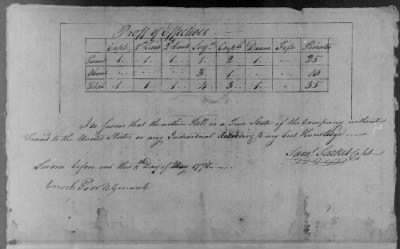 Proof of Effectives
Capt. 1st Lieut 2d Lieut Serjts Corpls Drum Fife Privates
Present 1 1 1 1 2 1 25
Absent 3 1 10
Total 1 1 1 4 3 1 35
I do Swear that the within Roll is a True State of the Company without
Fraud to the United States or any Individual According to my best Knowledge
Saml
Sworn before me this Day of May 1778
Enoch Poor B. General